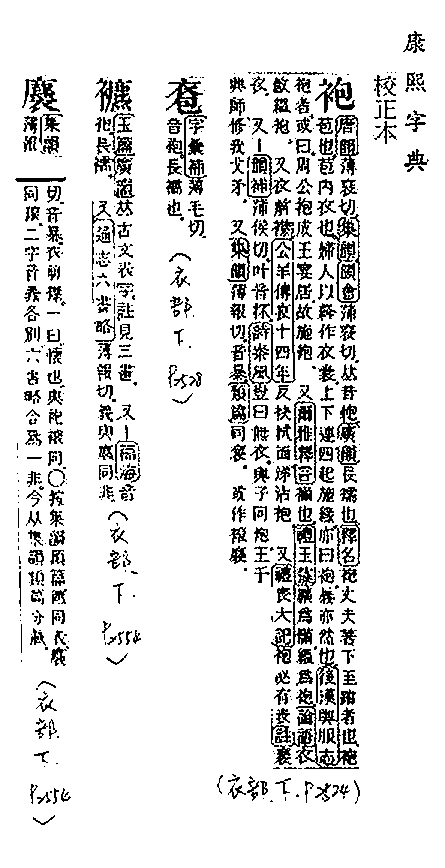 康熙字典
校正本
袍
唐韻薄褒切集韻韻會蒲褒切𠀤音庖廣韻長襦也釋名袍丈夫著下至跗者也袍
苞也苞內衣也婦人以絳作衣裳上下連四起施緣亦曰袍義亦然也後漢輿服志
袍者或曰周公抱成王宴居故施袍 又爾雅釋言襺也禮玉藻纊爲襺縕爲袍論語衣
敝縕袍 又衣前襟公羊傳哀十四年反袂拭面涕沾袍 又禮喪大記袍必有表註褻
衣 又丨韻補蒲侯切叶音抔詩秦風豈曰無衣與子同袍王于
興師修我戈矛 又集韻薄報切音暴類篇同袌 或作
(衣部下.P2524)
字彙補薄毛切
音袍長襦也
(衣部下.P2528)
玉篇廣韻𠀤古文表字註見三畫 又丨福海音
袍長襦 又通志六書略薄報切義與同非
(衣部下.P2554)
集韻
薄報
切音暴衣前襟一曰懷也與袍袌同○按集韻類篇同
同二字音義各別六書略合爲一非今从集韻類篇分載
(衣部下.P2554)